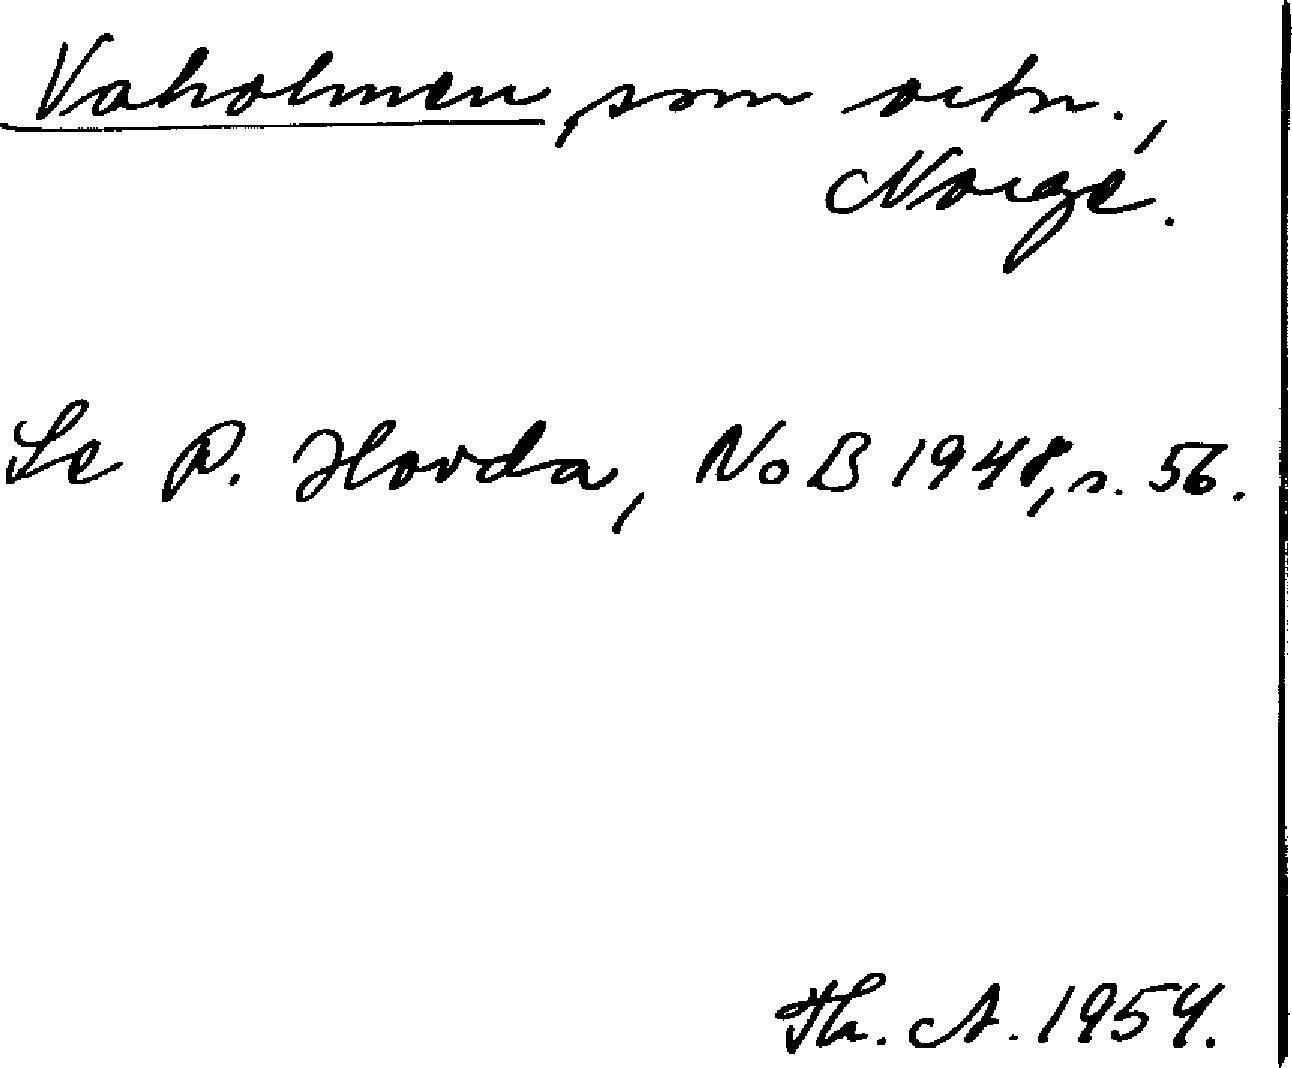 Vaholmen, som ortn.,
Norge.
Se P. Hovda, NoB 1948, s. 56.
Th. A. 1954.